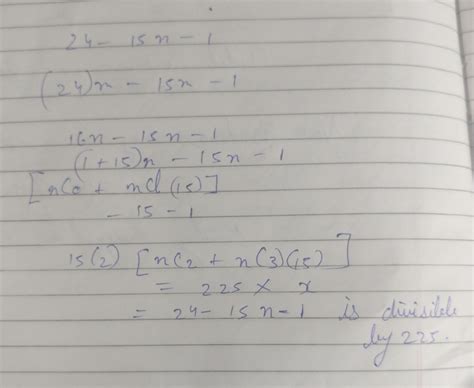 24 - 15n - 1
(24)n - 15n - 1
16n - 15n - 1
(1+15)n - 15n - 1
[nC0 + nC1(15)]
- 15 - 1
15(2) [nC2 + n(3)(15)]
= 225 × x
= 24 - 15n - 1 is divisible
by 225.